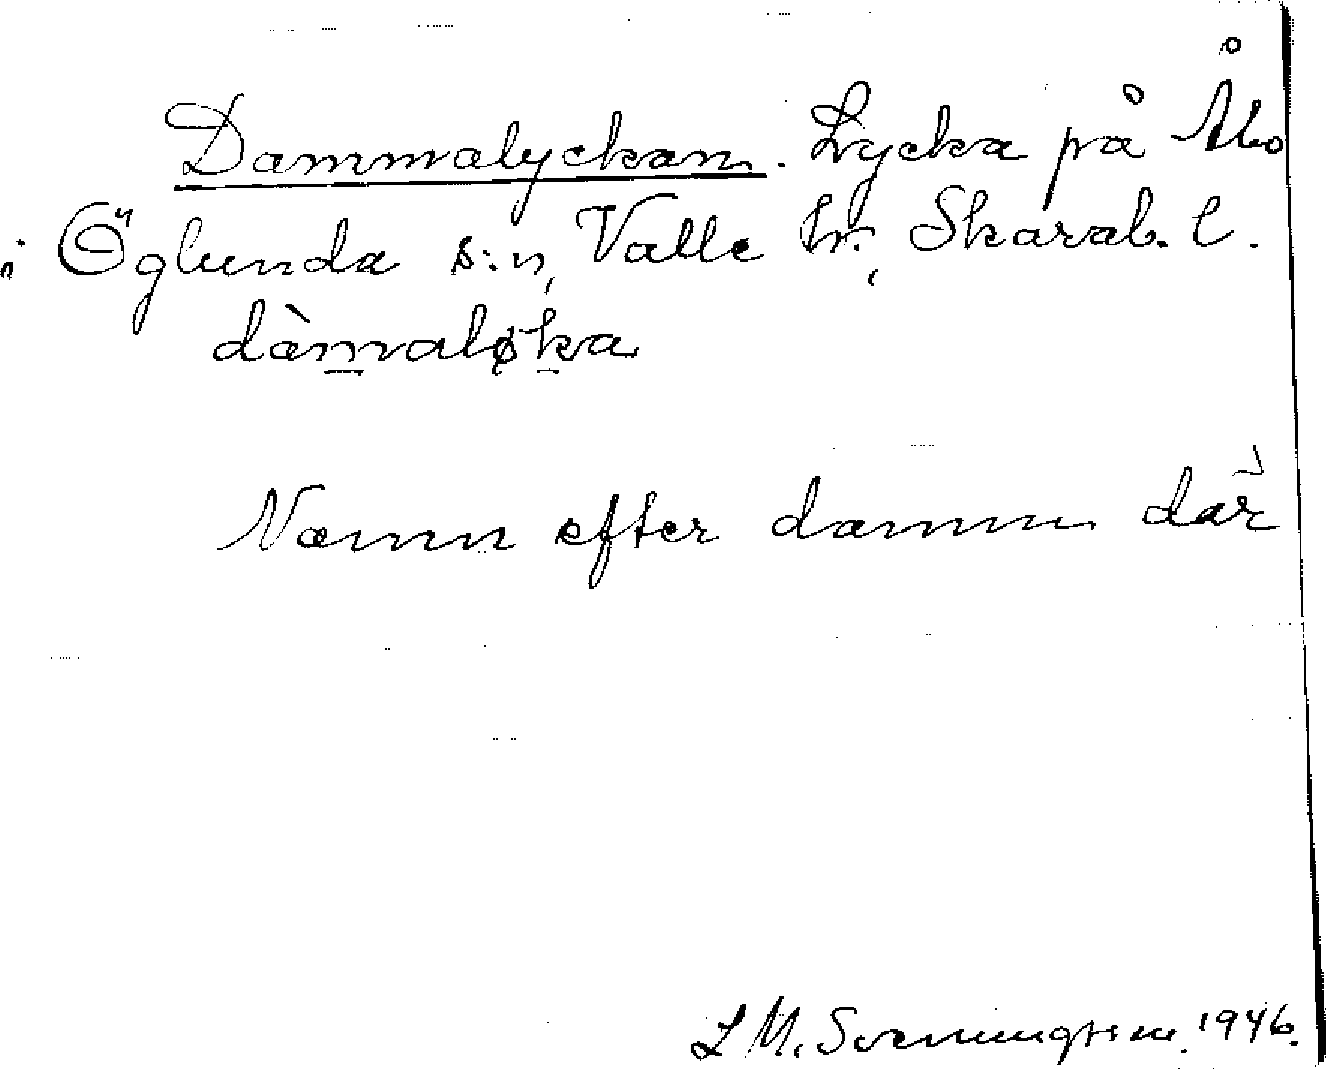 Dammalyckan. Lycka på Åbo
i Öglunda s:n, Valle hr., Skarab. l.
dàmaløka
Namn efter damm där
L M. Svenningsson. 1946.